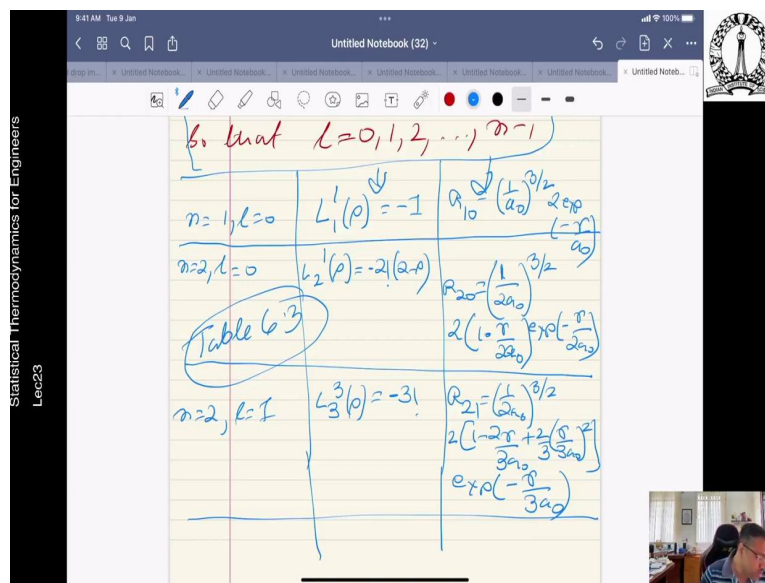 9:41 AM Tue 9 Jan
100%
Untitled Notebook (32)
drop im...
× Untitled Notebook...
× Untitled Notebook...
× Untitled Notebook...
× Untitled Notebook...
× Untitled Notebook...
× Untitled Notebook...
× Untitled Noteb...
Statistical Thermodynamics for Engineers
Lec23
So that l=0,1,2,...,n-1
n=1, l=0
L₁¹(ρ) = -1
R₁₀ = (1/a₀)^3/2 2 exp(-r/a₀)
n=2, l=0
L₂¹(ρ) = -2!(2-ρ)
R₂₀ = (1/2a₀)^3/2
2(1-r/2a₀) exp(-r/2a₀)
Table 6.3
n=2, l=1
L₃³(ρ) = -3!
R₂₁ = (1/2a₀)^3/2
2[1-2r/3a₀+2/3(r/3a₀)²]
exp(-r/3a₀)